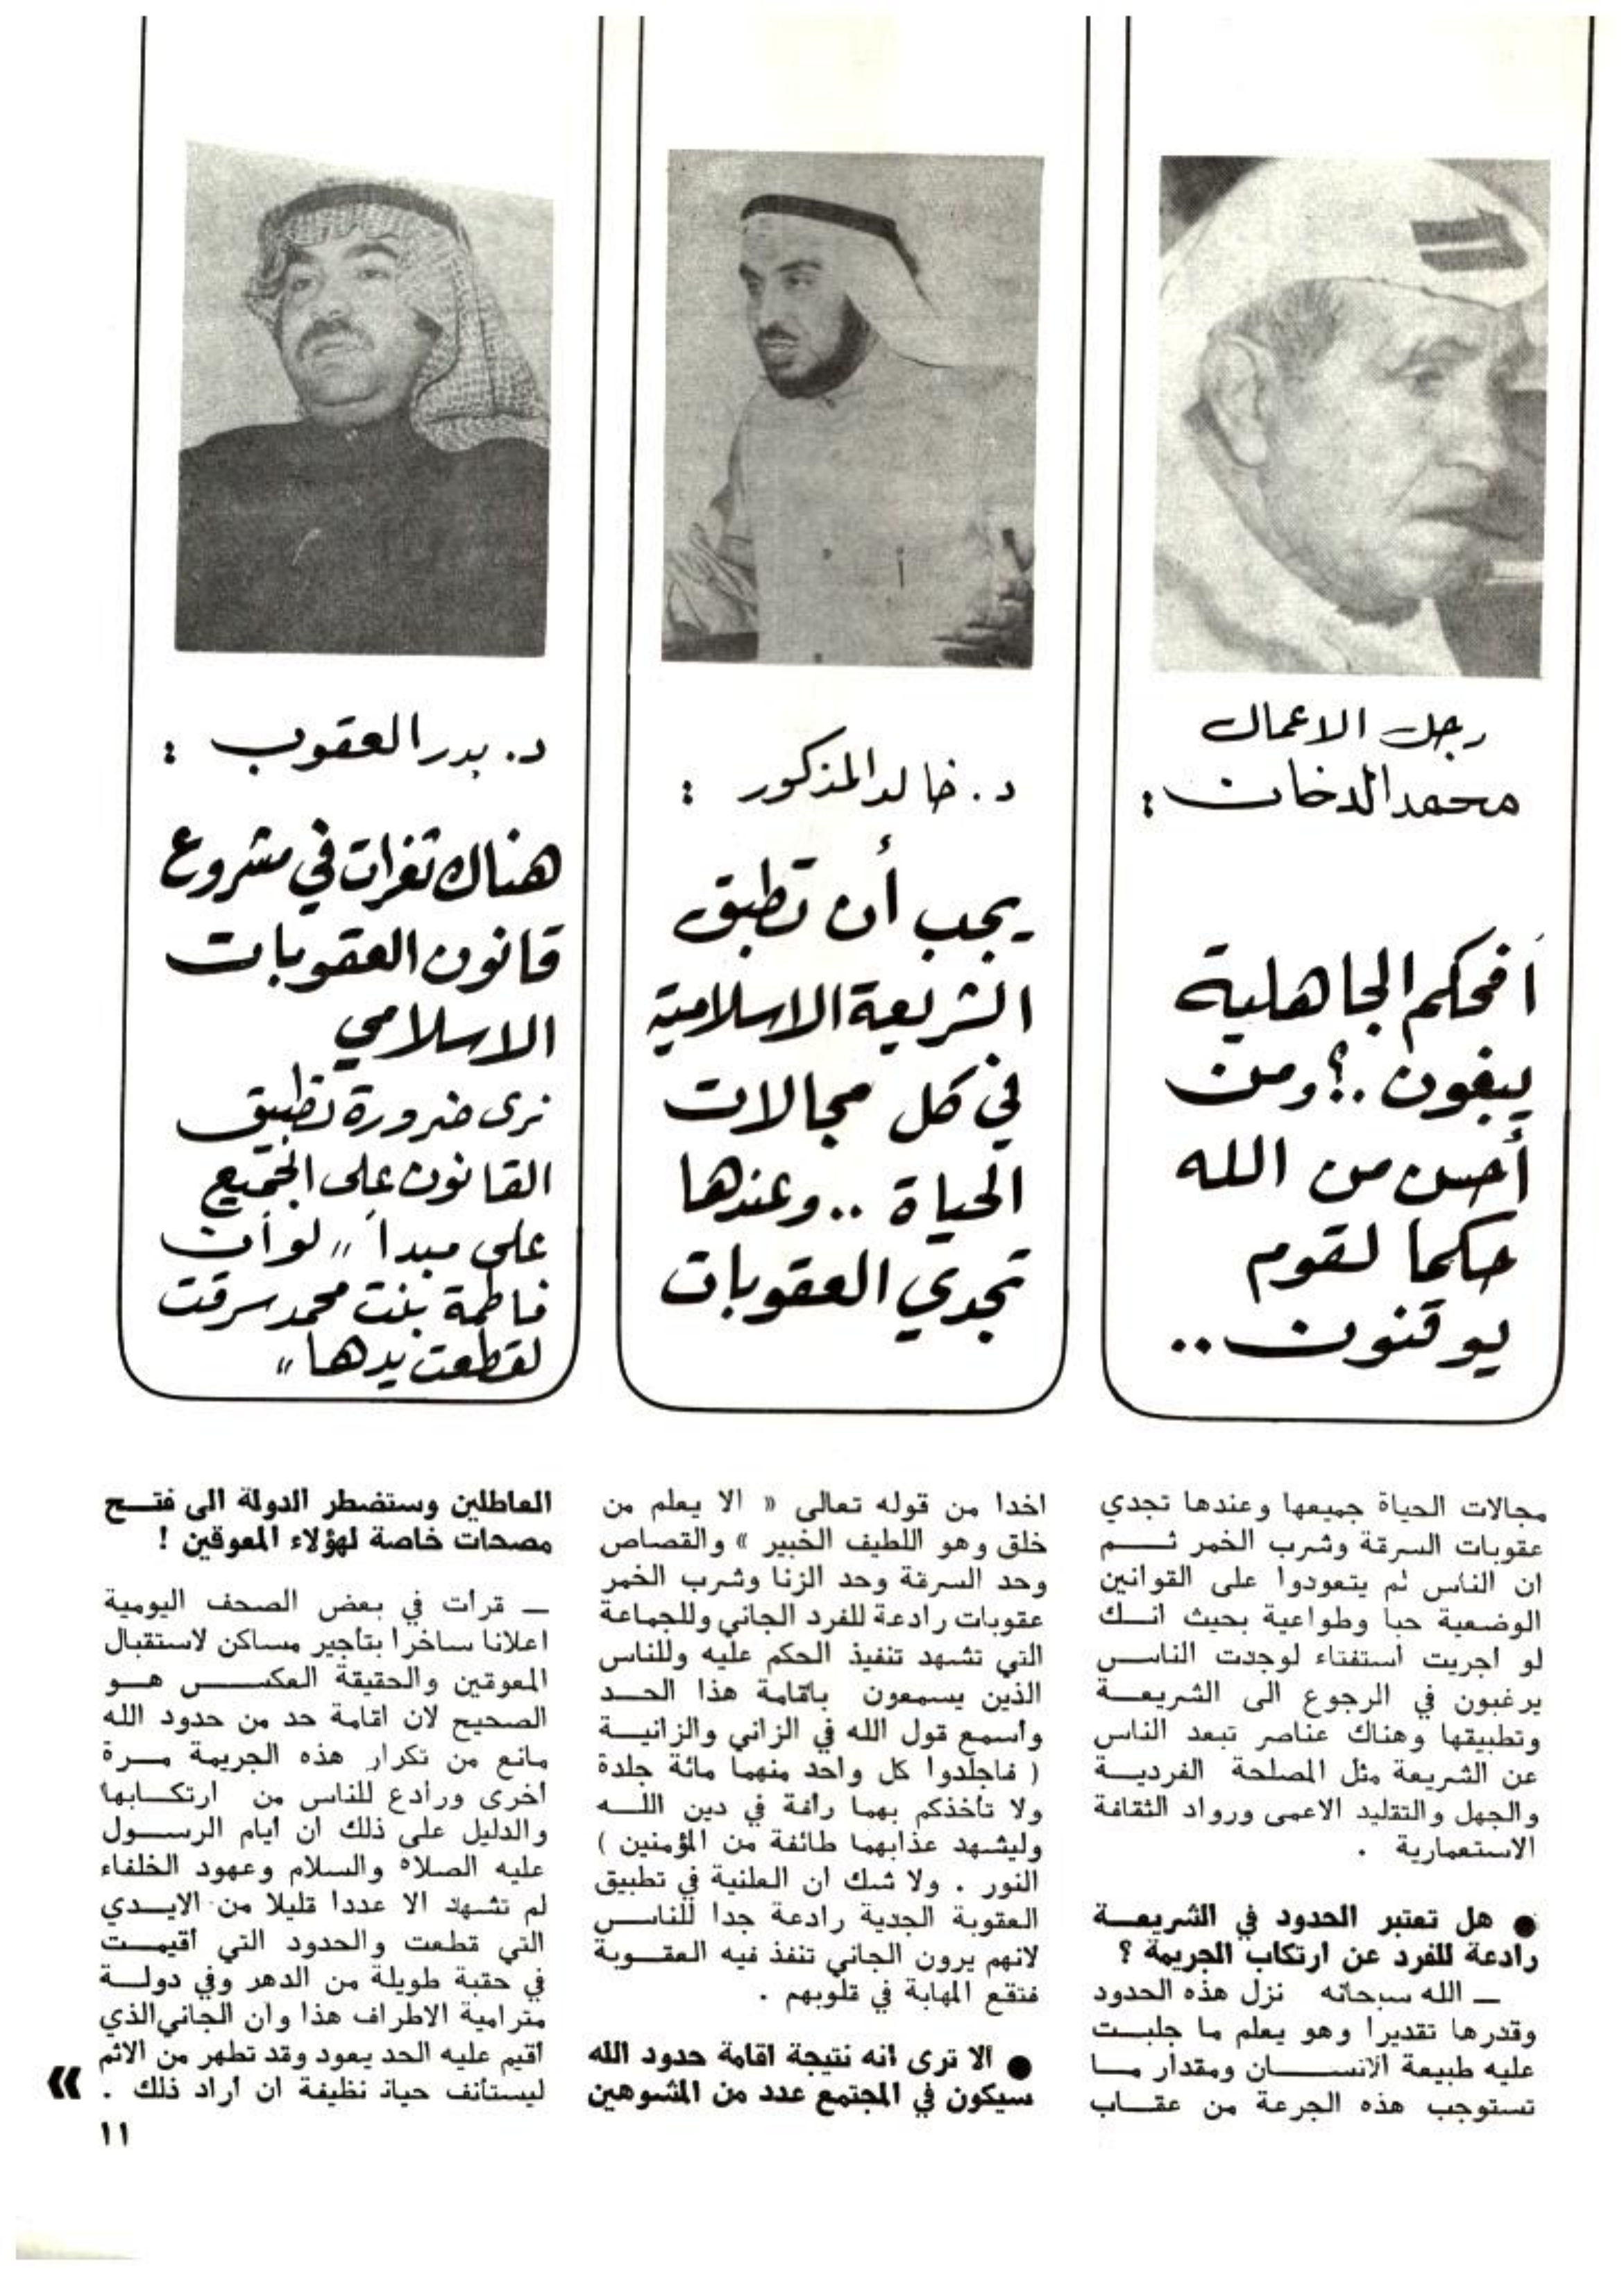 رجل الاعمال
محمد الدخان :
أفحكم الجاهلية
يبغون .؟ ومن
أحسن من الله
حكما لقوم
يوقنون ..
د. خالد المذكور :
يجب أن تطبق
الشريعة الاسلامية
في كل مجالات
الحياة .. وعندها
تجدي العقوبات
د. بدر العقوب :
هناك ثغرات في مشروع
قانون العقوبات
الاسلامي
نرى ضرورة تطبيق
القانون على الجميع
على مبدأ " لو أن
فاطمة بنت محمد سرقت
لقطعت يدها "
مجالات الحياة جميعها وعندها تجدي
عقوبات السرقة وشرب الخمر ثم
ان الناس لم يتعودوا على القوانين
الوضعية حبا وطواعية بحيث انك
لو اجريت استفتاء لوجدت الناس
يرغبون في الرجوع الى الشريعة
وتطبيقها وهناك عناصر تبعد الناس
عن الشريعة مثل المصلحة الفردية
والجهل والتقليد الاعمى ورواد الثقافة
الاستعمارية .
● هل تعتبر الحدود في الشريعة
رادعة للفرد عن ارتكاب الجريمة ؟
ــ الله سبحانه نزل هذه الحدود
وقدرها تقديرا وهو يعلم ما جلبت
عليه طبيعة الانسان ومقدار ما
تستوجب هذه الجرعة من عقاب
اخدا من قوله تعالى « الا يعلم من
خلق وهو اللطيف الخبير » والقصاص
وحد السرقة وحد الزنا وشرب الخمر
عقوبات رادعة للفرد الجاني وللجماعة
التي تشهد تنفيذ الحكم عليه وللناس
الذين يسمعون باقامة هذا الحد
واسمع قول الله في الزاني والزانية
( فاجلدوا كل واحد منهما مائة جلدة
ولا تأخذكم بهما رأفة في دين الله
وليشهد عذابهما طائفة من المؤمنين )
النور . ولا شك ان العلنية في تطبيق
العقوبة الجدية رادعة جدا للناس
لانهم يرون الجاني تنفذ فيه العقوبة
فتقع المهابة في قلوبهم .
● الا ترى انه نتيجة اقامة حدود الله
سيكون في المجتمع عدد من المشوهين
العاطلين وستضطر الدولة الى فتح
مصحات خاصة لهؤلاء المعوقين !
ــ قرأت في بعض الصحف اليومية
اعلانا ساخرا بتأجير مساكن لاستقبال
المعوقين والحقيقة العكس هو
الصحيح لان اقامة حد من حدود الله
مانع من تكرار هذه الجريمة مرة
أخرى ورادع للناس من ارتكابها
والدليل على ذلك ان أيام الرسول
عليه الصلاه والسلام وعهود الخلفاء
لم تشهد الا عددا قليلا من الايدي
التي قطعت والحدود التي أقيمت
في حقبة طويلة من الدهر وفي دولة
مترامية الاطراف هذا وان الجاني الذي
أقيم عليه الحد يعود وقد تطهر من الاثم
ليستأنف حياة نظيفة ان اراد ذلك . »
١١